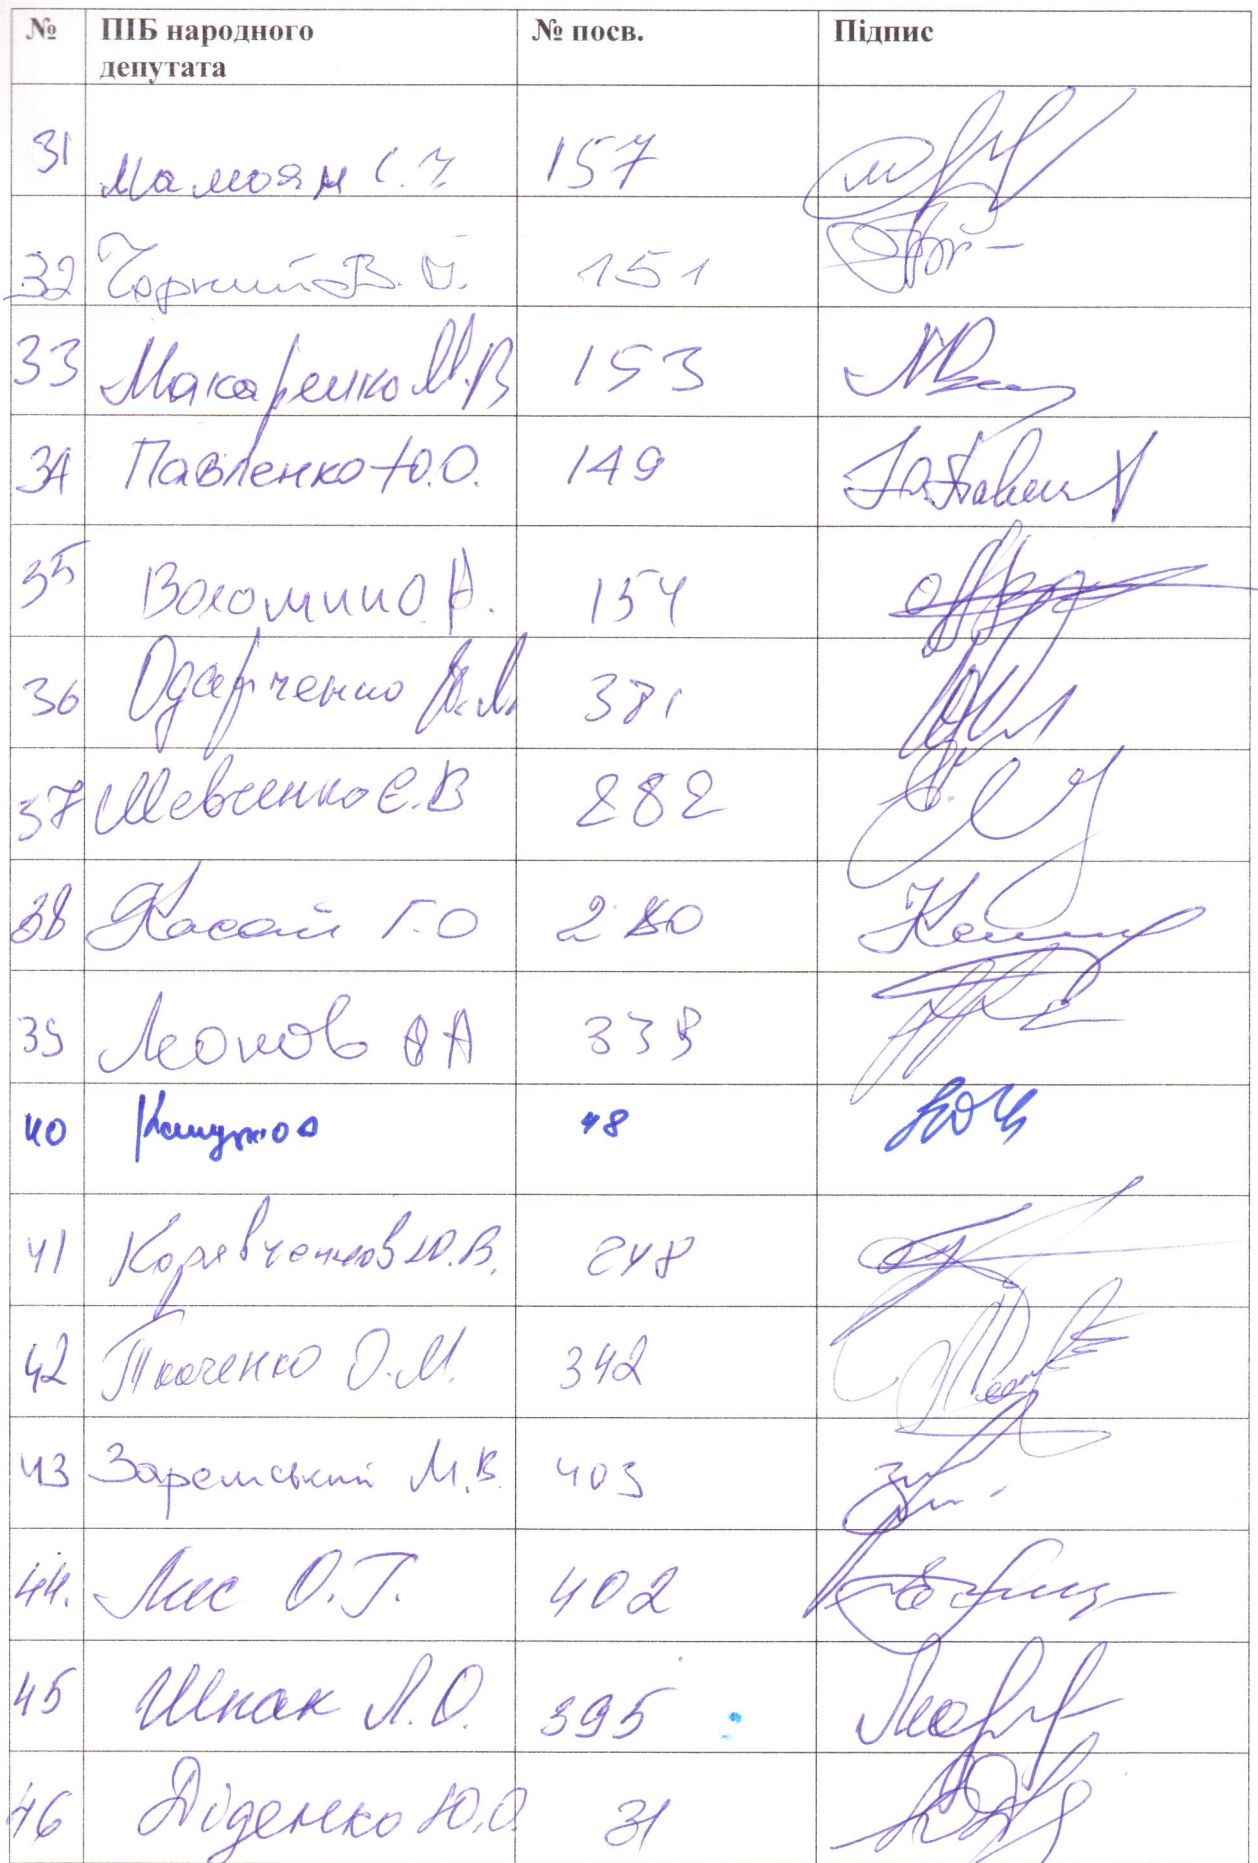 № ПІБ народного депутата № посв. Підпис
31 Мамоян С. Ч 157
32 Чорний В. І. 151
33 Макаренко М.В 153
34 Павленко Ю.О. 149
35 154
36 Одарченко 381
37 Шевченко Є.В 282
38 Касай Г.О 280
39 Леонов О А 339
40 48
41 Ю.В. 248
42 Ткаченко О.М. 342
43 Заремський М.В. 403
44. Лис О.Г. 402
45 Шпак Л.О. 395
46 Діденко Ю.О. 31